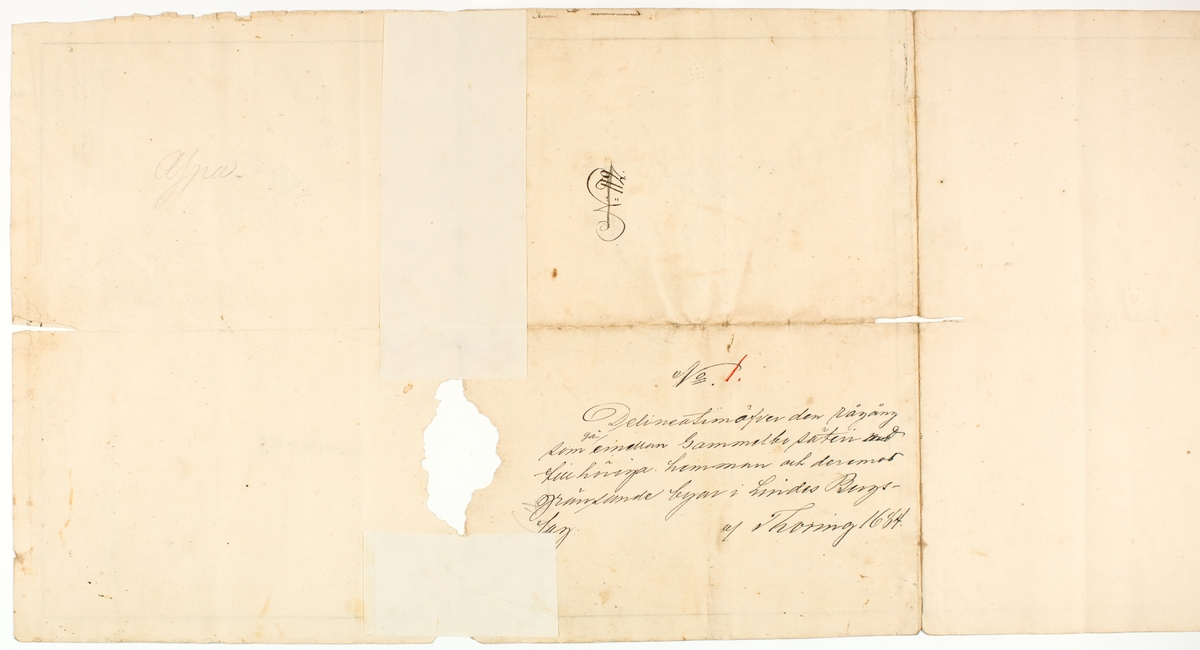 Aspa
No 1.
Delineation öfver den rågång
som gå emellan Gammelbo säteri med
tillhöriga hemman och deremot
gränsande byar i Lindes Bergs-
lag.
af Thoring 1684.